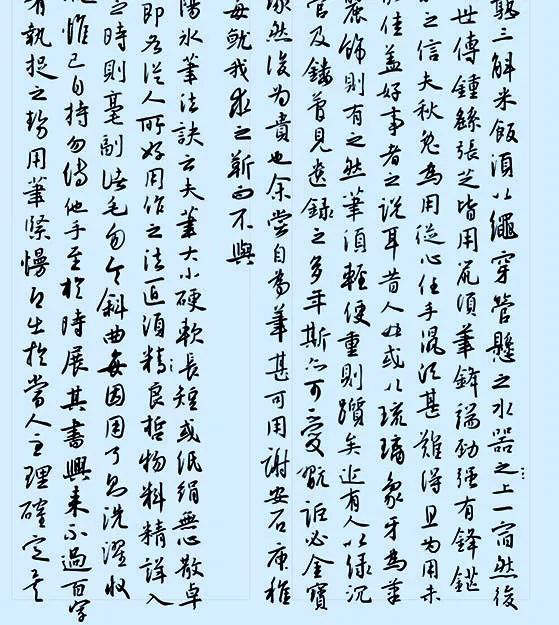 熟三斛米飯須以繩穿管懸之水器之上一宿然後
世傳鍾繇張芝皆用鼠須筆鋒端勁强有鋒鋩
之信夫秋兔為用從心任手鼠須甚難得且為用未
佳蓋好事者之說耳昔人或以琉璃象牙為筆
麗飾則有之然筆須輕便重則躓矣近有人以綠沉
管及鏤管見遺錄之多年斯亦可愛翫詎必金寶
琢然後為貴也余嘗自為筆甚可用謝安石庾稚
每就我求之靳而不與
陽冰筆法訣云夫筆大小硬軟長短或紙絹無心散卓
即各從人所好用作之法匠須精良哲物料精詳入
之時則毫副諸毛勿令斜曲每因用了則洗濯收
惟己自持勿傳他手至於時展其書興來不過百字
有執捉之勢用筆緊慢即出於當人主理確定矣